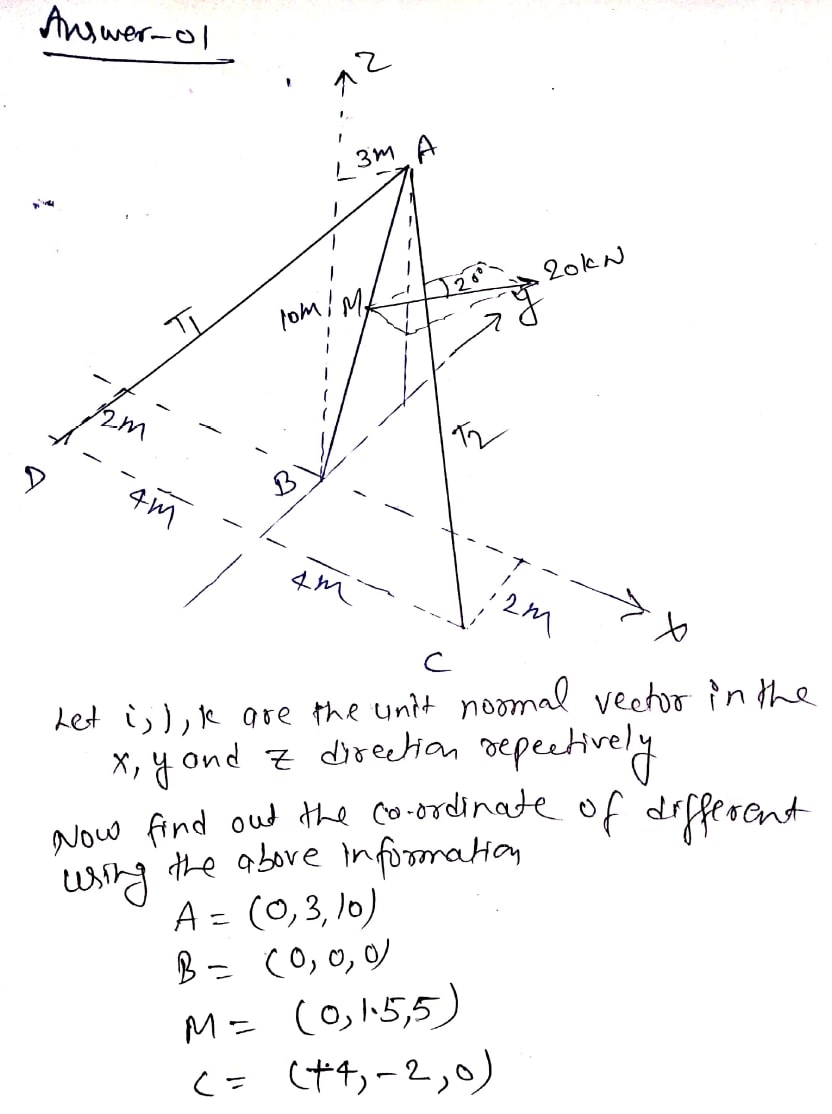 Answer-01
Z
3m A
20kN
20°
10m M
y
T1
2m
T2
D
B
4m
4m
2m
x
C
Let i, j, k are the unit normal vector in the
x, y and z direction repectively
Now find out the co-ordinate of different
using the above information
A = (0, 3, 10)
B = (0, 0, 0)
M = (0, 1.5, 5)
C = (+4, -2, 0)